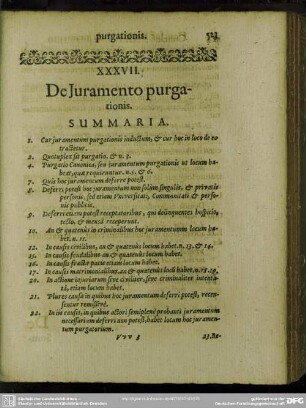 purgationis. 523
XXXVII.
De Juramento purga-
tionis.
SUMMARIA.
1. Cur juramentum purgationis inductum, & cur hoc in loco de eo
tractetur.
2. Quotuplex sit purgatio, & n. 3.
4. Purgatio Canonica, seu juramentum purgationis ut locum ha-
beat, quæ requirantur. n. 5. & 6.
7. Quis hoc juramentum deferre potest.
8. Deferri potest hoc juramentum non solùm singulis, & privatis
personis, sed etiam Universitati, Communitati & perso-
nis publicis.
9. Deferri etiam potest receptatoribus, qui delinquentes hospitio,
tecto, & mensâ receperunt.
10. An & quatenus in criminalibus hoc juramentum locum ha-
bet. n. 11.
12. In causis civilibus, an & quatenus locum habet. n. 13. & 14.
15. In causis feudalibus an & quatenus locum habet.
16. In causis fractæ pacis etiam locum habet.
17. In causis matrimonialibus, an & quatenus locū habet. n. 18. 19.
20. In actione injuriarum sive civiliter, seu criminaliter intenta-
tâ, etiam locum habet.
21. Plures causæ in quibus hoc juramentum deferri potest, recen-
sentur remissivè.
22. In iis causis, in quibus actori semiplenè probanti juramentum
necessarium deferri non potest, habet locum hoc juramen-
tum purgatorium.
Vvv 5 23. Re-